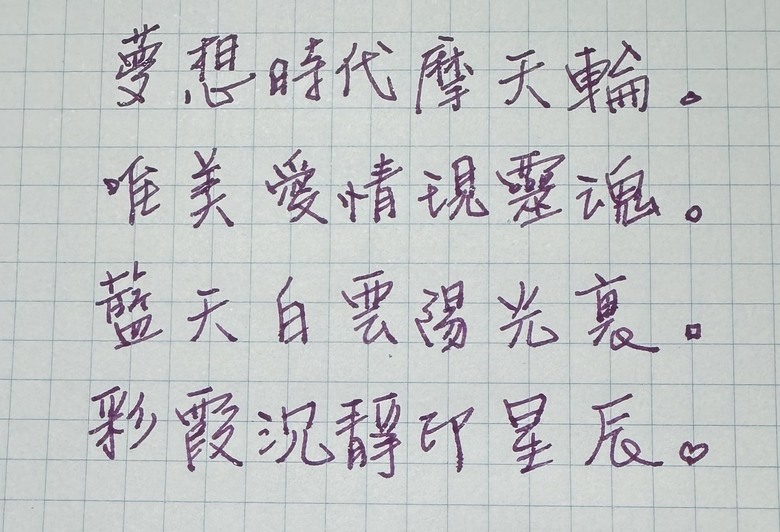 夢想時代摩天輪。
唯美愛情現靈魂。
藍天白雲陽光裏。
彩霞沉靜印星辰。